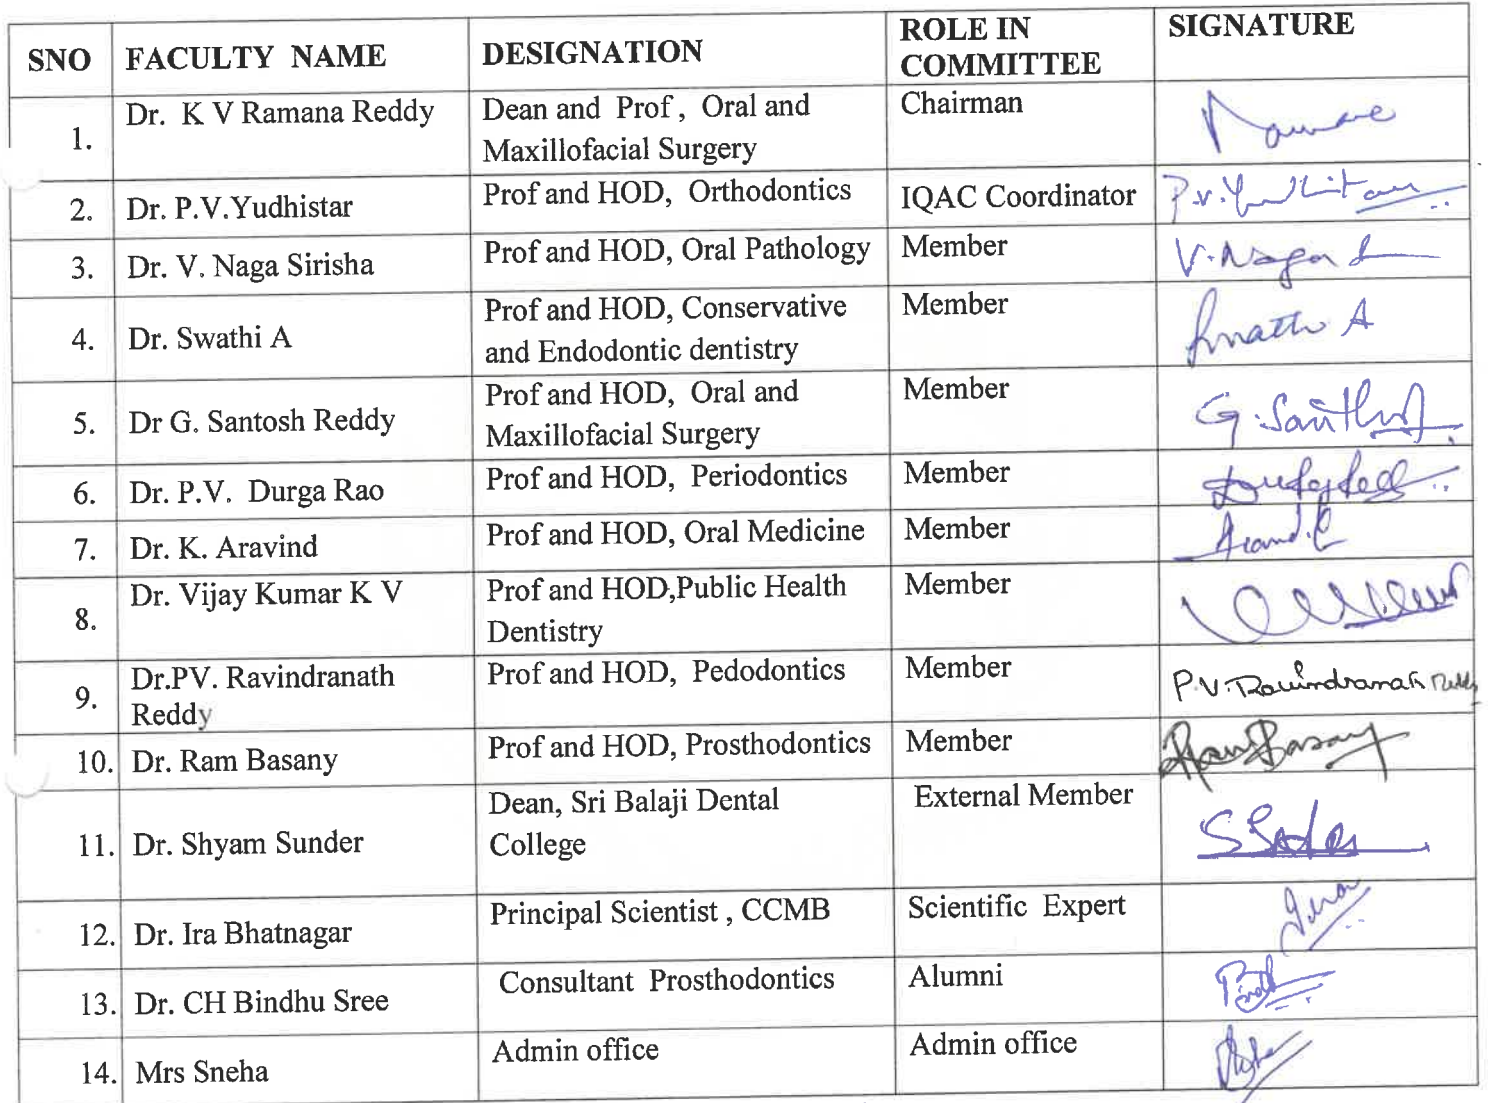 SNO FACULTY NAME DESIGNATION ROLE IN COMMITTEE SIGNATURE
1. Dr. K V Ramana Reddy Dean and Prof , Oral and Maxillofacial Surgery Chairman
2. Dr. P.V.Yudhistar Prof and HOD, Orthodontics IQAC Coordinator P.V.Yudhistar
3. Dr. V. Naga Sirisha Prof and HOD, Oral Pathology Member V.Naga
4. Dr. Swathi A Prof and HOD, Conservative and Endodontic dentistry Member Swathi A
5. Dr G. Santosh Reddy Prof and HOD, Oral and Maxillofacial Surgery Member G.Santhosh
6. Dr. P.V. Durga Rao Prof and HOD, Periodontics Member
7. Dr. K. Aravind Prof and HOD, Oral Medicine Member
8. Dr. Vijay Kumar K V Prof and HOD,Public Health Dentistry Member
9. Dr.PV. Ravindranath Reddy Prof and HOD, Pedodontics Member P.V.Ravindranath Reddy
10. Dr. Ram Basany Prof and HOD, Prosthodontics Member Ram Basany
11. Dr. Shyam Sunder Dean, Sri Balaji Dental College External Member
12. Dr. Ira Bhatnagar Principal Scientist , CCMB Scientific Expert
13. Dr. CH Bindhu Sree Consultant Prosthodontics Alumni
14. Mrs Sneha Admin office Admin office